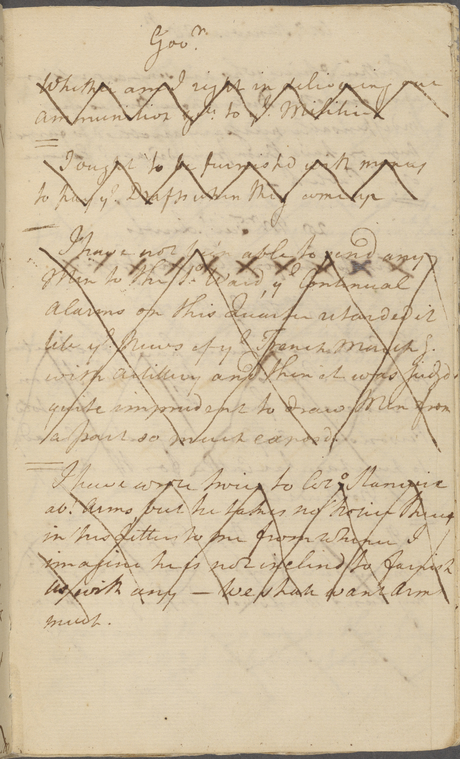 Govr.
Whether am I right in delivering out
ammunition &c to ye. Militia
I ought to be furnish'd with money
to pay ye. Drafts when they come up
I have not been able to send any
Men to the So. Ward, ye Continual
Alarms on this Quarter retarded it
till ye. News of ye French March g.
with Artillery and then it was judgd.
quite imprudent to draw Men from
a part so much exposd.
I have wrote twice to Colo. Stanwix
abt. Arms but he takes no notice thereof
in his Letters to me from whence I
imagine he is not inclind to furnish
us with any — we shall want Arms
much.